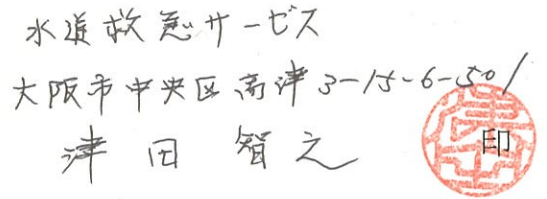 水道救急サービス
大阪市中央区高津3-15-6-501
津田智之 印